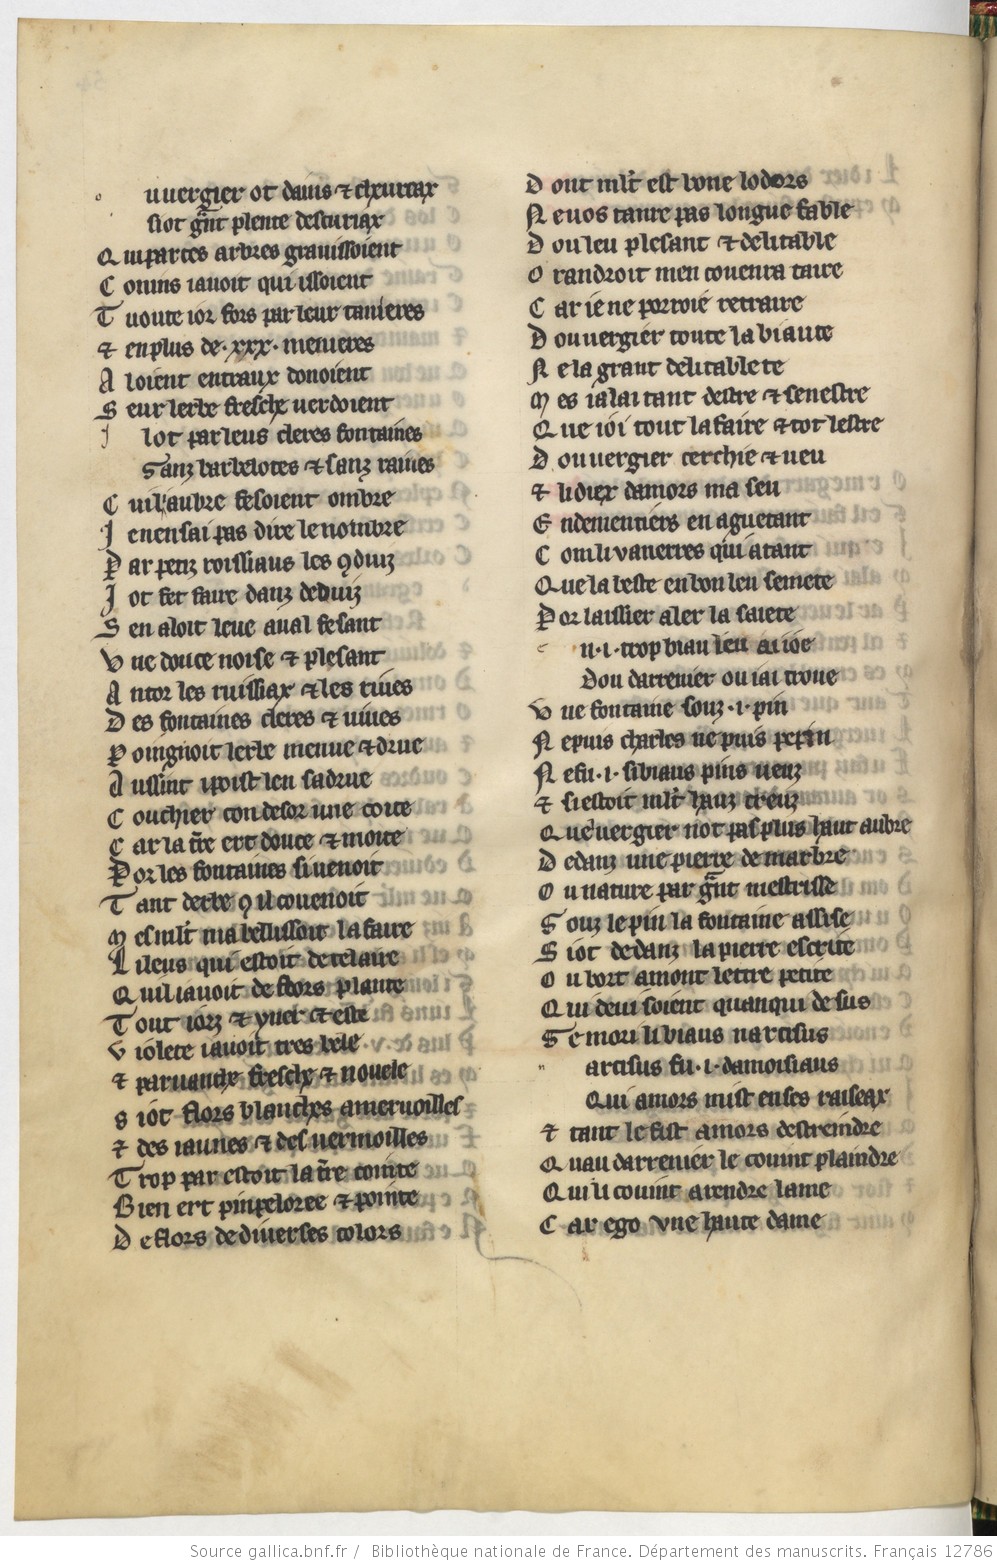 o uuergier ot dains ⁊ cheuriax
siot g̃nt plente descuriax
Q uiparces arbres grauissoient
C onins iauoit qui issoient
T uoute ior fors par leur tanieres
⁊ enplus de .xxx. menieres
A loient entraux donoient
S eur lerbe fresche uerdoient
J lot par leus cleres fontaines
Sanz barbelotes ⁊ sanz raines
C uil aubre fesoient ombre
J enensai pas dire le nombre
P ar petiz roissiaus les ꝯduiz
J ot fet faire danz deduiz
S en aloit leue aual fesant
V ne douce noise ⁊ plesant
A ntor les ruissiax ⁊ les riues
D es fontaines cleres ⁊ uiues
P oingnoit lerbe menue ⁊ drue
A ussint i poist len sa drue
C ouchier con desor une coite
C ar la t̃re ert douce ⁊ moite
P or les fontaines si uenoit
T ant derbe ꝯ il couenoit
M es ml̃t ma bellissoit lafaire
L i leus qui estoit de tel aire
Q uil iauoit de flors plante
T out iorz ⁊ yuer ⁊ este
V iolete iauoit tres bele
⁊ paruanche fresche ⁊ nouele
S iot flors blanches ameruoilles
⁊ des iaunes ⁊ des uermoilles
T rop par estoit la t̃re cointe
B ien ert pinpeloree ⁊ pointe
D e flors de diuerses colors
D ont ml̃t est bone lodors
N e uos tanre pas longue fable
D ou leu plesant ⁊ delitable
O randroit men couenra taire
C ar ie ne porroie retraire
D ou uergier toute la biaute
N e la grant delitablete
M es ialai tant destre ⁊ senestre
Q ue ioi tout lafaire ⁊ tot lestre
D ou uergier cerchie ⁊ ueu
⁊ li diex damors ma seu
E ndementiers en aguetant
C om li vanerres qui atant
Q ue la beste en bon leu se mete
P or laissier aler la saiete
e n .i. trop biau leu ariue
Dou darrenier ou iai troue
V ne fontaine souz .i. pin
N e puis charles ne puis pepin
N e fu .i. si biaus pins ueuz
⁊ si estoit ml̃t hauz creuz
Q ue uergier not pas plus haut aubre
D edanz une pierre de marbre
O u nature par g̃nt mestrisse
S ouz le pin la fontaine assise
S iot dedanz la pierre escrite
O u bort amont lettre petite
Q ui deuisoient quanqui desus
S e mori li biaus narcisus
n arcisus fu .i. damoisiaus
Qui amors mist en ses raiseax
⁊ tant le fist amors destreindre
Q uau darrenier le couint plaindre
Q uil i couint a rendre lame
C ar ego vne haute dame
Source gallica.bnf.fr / Bibliothèque nationale de France. Département des manuscrits. Français 12786